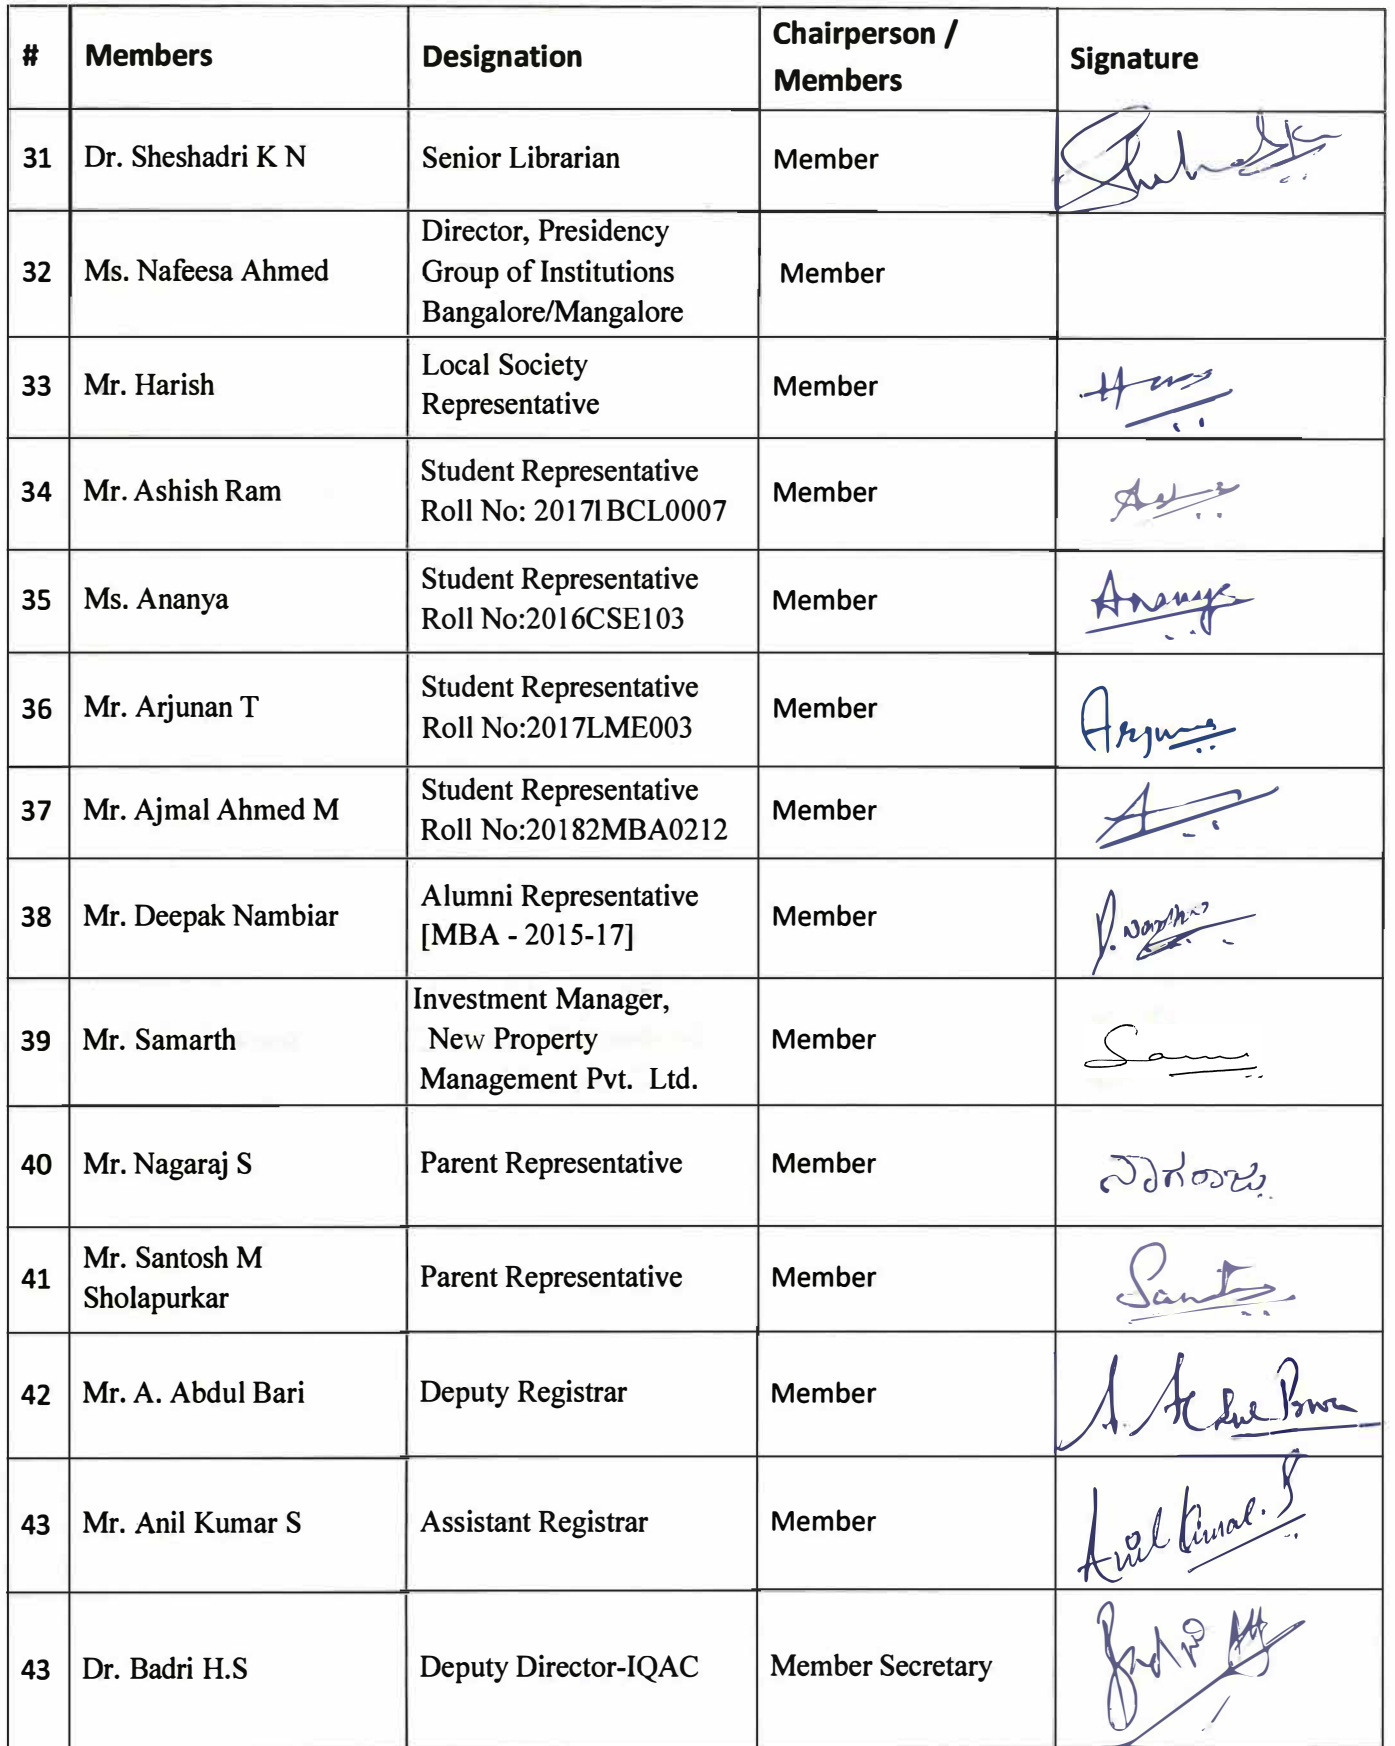 # Members Designation Chairperson / Members Signature
31 Dr. Sheshadri K N Senior Librarian Member
32 Ms. Nafeesa Ahmed Director, Presidency
Group of Institutions Member
Bangalore/Mangalore
33 Mr. Harish Local Society
Representative Member
34 Mr. Ashish Ram Student Representative
Roll No: 20171BCL0007 Member
35 Ms. Ananya Student Representative
Roll No:2016CSE103 Member Ananya
36 Mr. Arjunan T Student Representative
Roll No:2017LME003 Member
37 Mr. Ajmal Ahmed M Student Representative
Roll No:20182MBA0212 Member
38 Mr. Deepak Nambiar Alumni Representative
[MBA - 2015-17] Member
39 Mr. Samarth Investment Manager,
New Property Member
Management Pvt. Ltd.
40 Mr. Nagaraj S Parent Representative Member ನಾಗರಾಜು
41 Mr. Santosh M
Sholapurkar Parent Representative Member
42 Mr. A. Abdul Bari Deputy Registrar Member
43 Mr. Anil Kumar S Assistant Registrar Member Anil Kumar. S
43 Dr. Badri H.S Deputy Director-IQAC Member Secretary